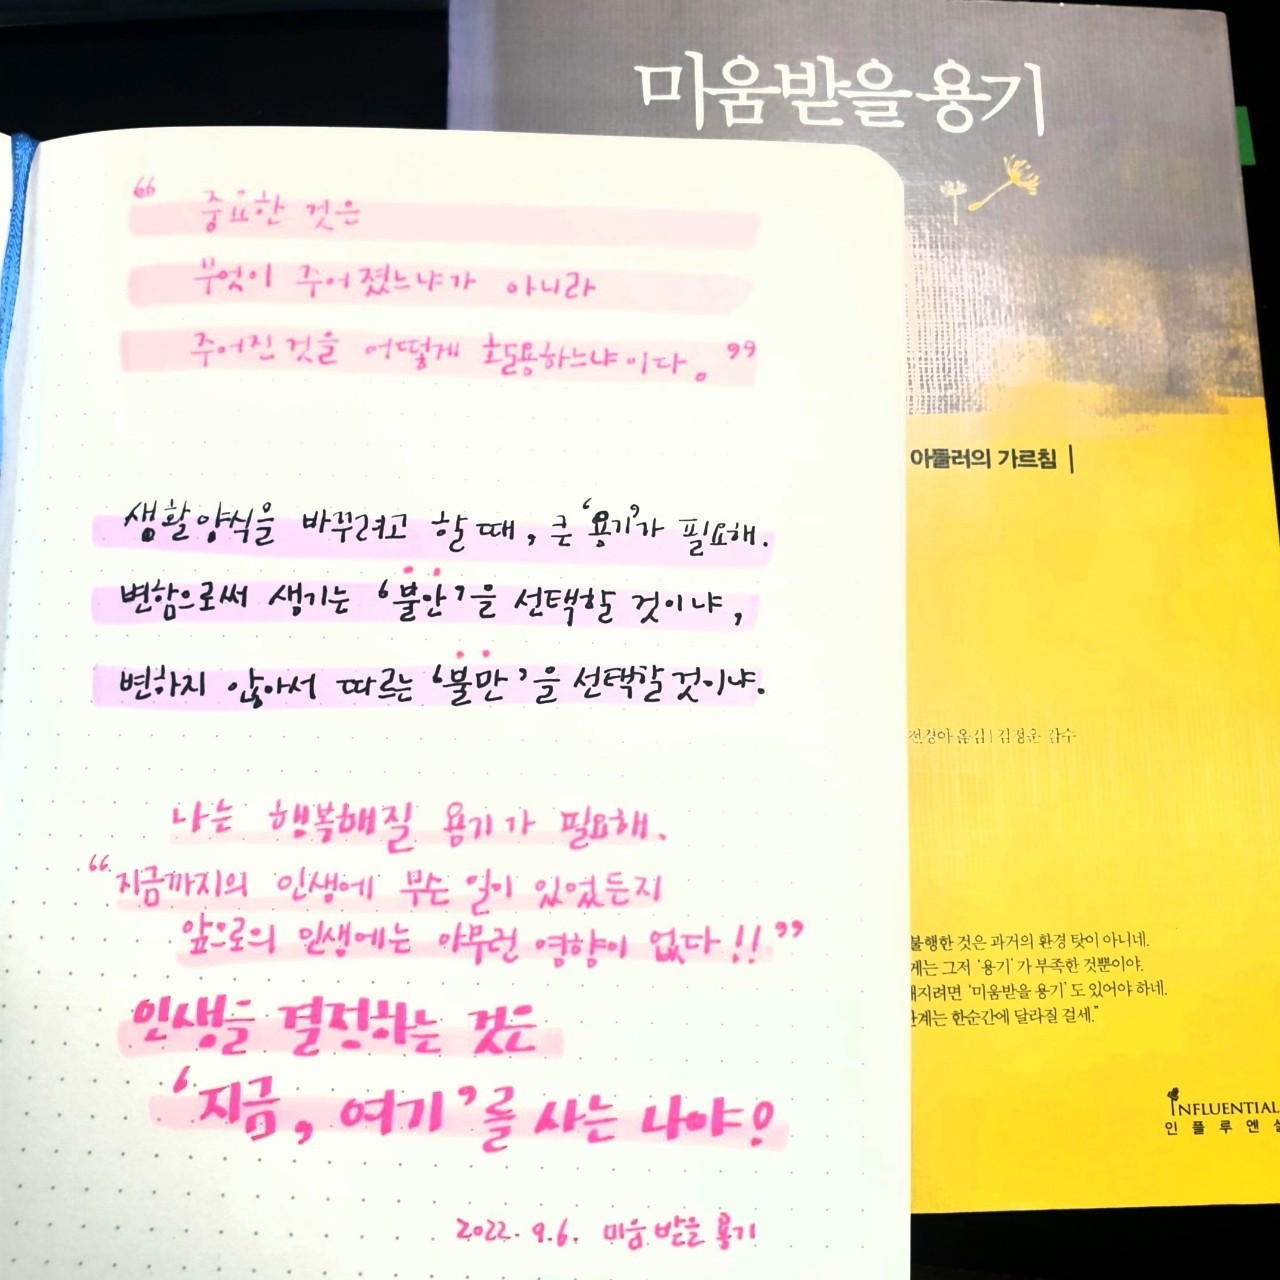 “ 중요한 것은
무엇이 주어졌느냐가 아니라
주어진 것을 어떻게 활용하느냐이다. ”
생활양식을 바꾸려고 할 때, 큰 '용기'가 필요해.
변함으로써 생기는 '불안'을 선택할 것이냐,
변하지 않아서 따르는 '불만'을 선택할 것이냐.
나는 행복해질 용기가 필요해.
“지금까지의 인생에 무슨 일이 있었든지
앞으로의 인생에는 아무런 영향이 없다!!”
인생을 결정하는 것은
'지금, 여기'를 사는 나야!
2022. 9. 6. 미움 받을 용기
미움받을 용기
아들러의 가르침 |
전경아 옮김 | 김정운 감수
불행한 것은 과거의 환경 탓이 아니네.
게는 그저 '용기'가 부족한 것뿐이야.
해지려면 '미움받을 용기'도 있어야 하네.
관계는 한순간에 달라질 걸세.”
INFLUENTIAL
인플루엔셜